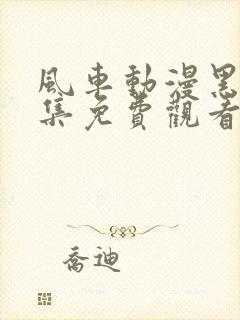 風車動漫黑
集免費觀看
喬迪